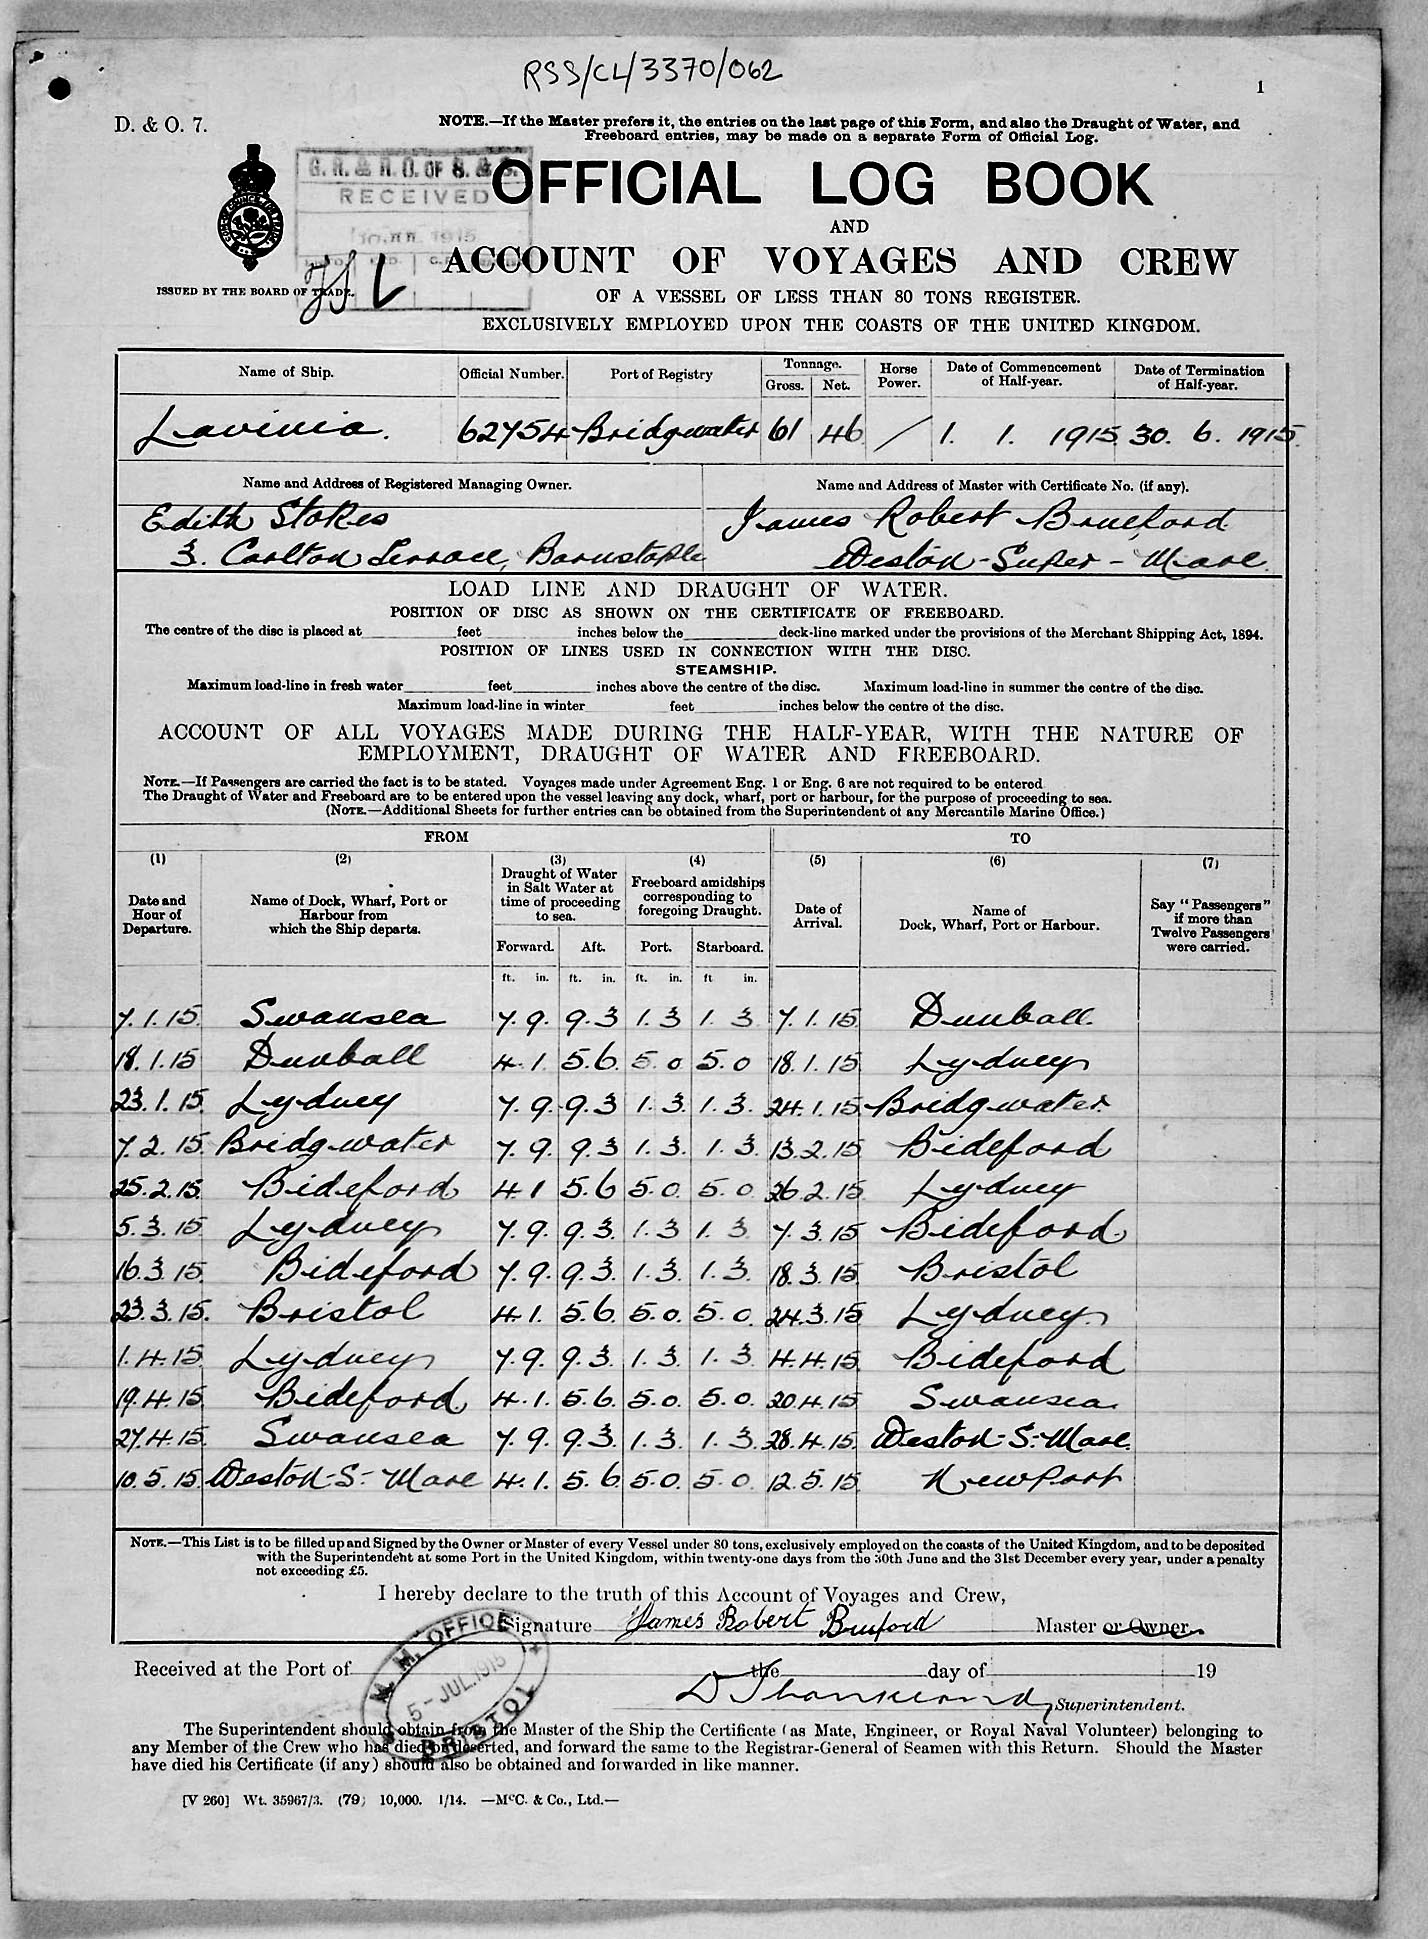 RSS/CL/3370/062
1
D. & O. 7.
NOTE.—If the Master prefers it, the entries on the last page of this Form, and also the Draught of Water, and
Freeboard entries, may be made on a separate Form of Official Log.
G. R. & R. O. OF S. & S.
RECEIVED
1915
OFFICIAL LOG BOOK
AND
ACCOUNT OF VOYAGES AND CREW
ISSUED BY THE BOARD OF TRADE.
OF A VESSEL OF LESS THAN 80 TONS REGISTER.
EXCLUSIVELY EMPLOYED UPON THE COASTS OF THE UNITED KINGDOM.
Name of Ship. Official Number. Port of Registry Tonnage. Gross. Net. Horse Power. Date of Commencement of Half-year. Date of Termination of Half-year.
Lavinia. 62754 Bridgwater 61 46 / 1. 1. 1915 30. 6. 1915.
Name and Address of Registered Managing Owner. Name and Address of Master with Certificate No. (if any).
Edith Stokes James Robert Bruford
3. Carlton Terrace, Barnstaple Weston-Super-Mare
LOAD LINE AND DRAUGHT OF WATER.
POSITION OF DISC AS SHOWN ON THE CERTIFICATE OF FREEBOARD.
The centre of the disc is placed at feet inches below the deck-line marked under the provisions of the Merchant Shipping Act, 1894.
POSITION OF LINES USED IN CONNECTION WITH THE DISC.
STEAMSHIP.
Maximum load-line in fresh water feet inches above the centre of the disc. Maximum load-line in summer the centre of the disc.
Maximum load-line in winter feet inches below the centre of the disc.
ACCOUNT OF ALL VOYAGES MADE DURING THE HALF-YEAR, WITH THE NATURE OF
EMPLOYMENT, DRAUGHT OF WATER AND FREEBOARD.
NOTE.—If Passengers are carried the fact is to be stated. Voyages made under Agreement Eng. 1 or Eng. 6 are not required to be entered
The Draught of Water and Freeboard are to be entered upon the vessel leaving any dock, wharf, port or harbour, for the purpose of proceeding to sea.
(NOTE.—Additional Sheets for further entries can be obtained from the Superintendent of any Mercantile Marine Office.)
FROM TO
(1) (2) (3) (4) (5) (6) (7)
Date and Hour of Departure.
Name of Dock, Wharf, Port or Harbour from which the Ship departs.
Draught of Water in Salt Water at time of proceeding to sea.
Freeboard amidships corresponding to foregoing Draught.
Date of Arrival.
Name of Dock, Wharf, Port or Harbour.
Say "Passengers" if more than Twelve Passengers were carried.
Forward. Aft. Port. Starboard.
ft. in. ft. in. ft. in. ft in.
7.1.15. Swansea 7.9. 9.3 1.3 1.3 7.1.15. Dunball.
18.1.15 Dunball 4.1. 5.6. 5.0 5.0 18.1.15 Lydney
23.1.15. Lydney 7.9. 9.3 1.3. 1.3. 24.1.15 Bridgwater.
7.2.15. Bridgwater 7.9. 9.3 1.3. 1.3. 13.2.15 Bideford
25.2.15. Bideford 4.1 5.6 5.0. 5.0 26.2.15 Lydney
5.3.15. Lydney 7.9. 9.3. 1.3 1.3 7.3.15 Bideford.
16.3.15. Bideford 7.9. 9.3. 1.3. 1.3. 18.3.15. Bristol
23.3.15. Bristol 4.1. 5.6. 5.0. 5.0. 24.3.15 Lydney.
1.4.15. Lydney 7.9. 9.3. 1.3. 1.3 4.4.15. Bideford
19.4.15. Bideford. 4.1. 5.6. 5.0. 5.0. 20.4.15 Swansea.
27.4.15. Swansea 7.9. 9.3. 1.3. 1.3. 28.4.15. Weston-S-Mare.
10.5.15. Weston-S-Mare 4.1. 5.6 5.0. 5.0. 12.5.15. Newport
NOTE.—This List is to be filled up and Signed by the Owner or Master of every Vessel under 80 tons, exclusively employed on the coasts of the United Kingdom, and to be deposited
with the Superintendent at some Port in the United Kingdom, within twenty-one days from the 30th June and the 31st December every year, under a penalty
not exceeding £5.
I hereby declare to the truth of this Account of Voyages and Crew,
Signature James Robert Bruford Master or Owner.
M. M. OFFICE
5-JUL.1915
BRISTOL
Received at the Port of the day of 19
Superintendent.
The Superintendent should obtain from the Master of the Ship the Certificate (as Mate, Engineer, or Royal Naval Volunteer) belonging to
any Member of the Crew who has died or deserted, and forward the same to the Registrar-General of Seamen with this Return. Should the Master
have died his Certificate (if any) should also be obtained and forwarded in like manner.
[V 260] Wt. 35967/3. (79) 10,000. 1/14. —McC. & Co., Ltd.—